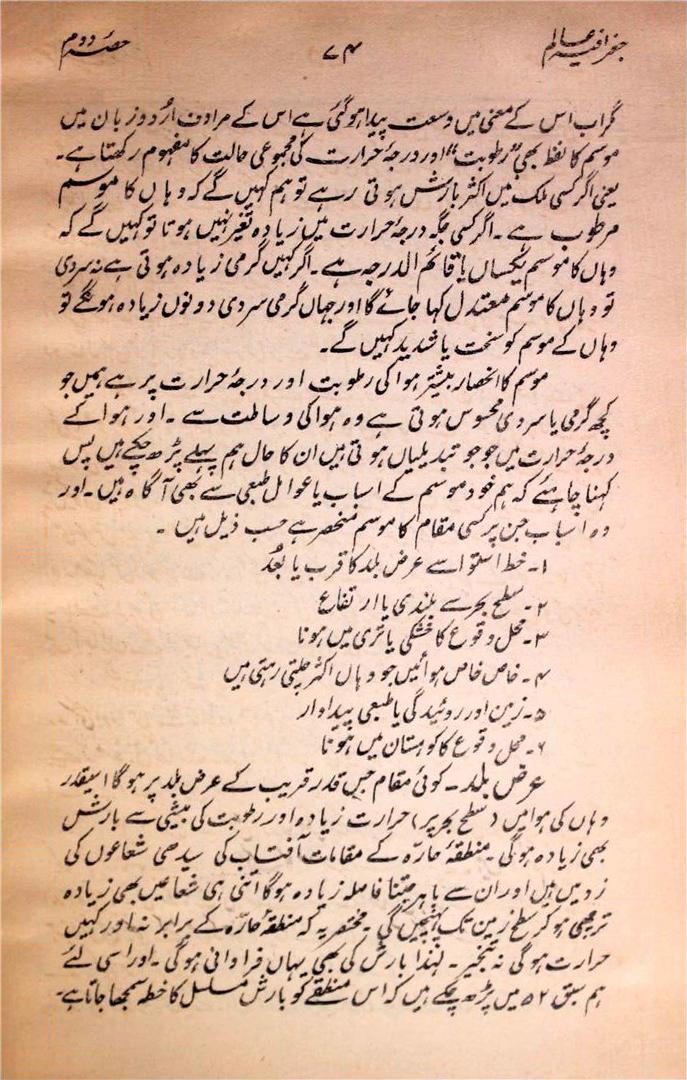 جغرافیہ عالم ۷۴ حصہ دوم
مگر اب اس کے معنی میں وسعت پیدا ہو گئی ہے اس کے مرادف اُردو زبان میں
موسم کا لفظ بھی ”رطوبت“ اور درجۂ حرارت کی مجموعی حالت کا مفہوم رکھتا ہے۔
یعنی اگر کسی ملک میں اکثر بارش ہوتی رہے تو ہم کہیں گے کہ وہاں کا موسم
مرطوب ہے ۔ اگر کسی جگہ درجۂ حرارت میں زیادہ تغیر نہیں ہوتا تو کہیں گے کہ
وہاں کا موسم یکساں یا قائم الدرجہ ہے ۔ اگر کہیں گرمی زیادہ ہوتی ہے نہ سردی
تو وہاں کا موسم معتدل کہا جائے گا اور جہاں گرمی سردی دونوں زیادہ ہونگے تو
وہاں کے موسم کو سخت یا شدید کہیں گے۔
موسم کا انحصار بیشتر ہوا کی رطوبت اور درجۂ حرارت پر ہے ہمیں جو
کچھ گرمی یا سردی محسوس ہوتی ہے وہ ہوا کی وساطت سے ۔ اور ہوا کے
درجۂ حرارت میں جو جو تبدیلیاں ہوتی ہیں ان کا حال ہم پہلے پڑھ چکے ہیں پس
کہنا چاہئے کہ ہم خود موسم کے اسباب یا عوامل طبعی سے بھی آگاہ ہیں ۔ اور
وہ اسباب جن پر کسی مقام کا موسم منحصر ہے حسب ذیل ہیں ۔
۱۔ خط استوا سے عرض بلد کا قرب یا بُعد
۲۔ سطح بحر سے بلندی یا ارتفاع
۳۔ محل وقوع کا خشکی یا تری میں ہونا
۴۔ خاص خاص ہوائیں جو وہاں اکثر چلتی رہتی ہیں
۵۔ زمین اور روئیدگی یا طبعی پیداوار
۶۔ محل وقوع کا کوہستان میں ہونا
عرض بلد ۔ کوئی مقام جس قدر قریب کے عرض بلد پر ہو گا اسیقدر
وہاں کی ہوا میں (سطح بحر پر) حرارت زیادہ اور رطوبت کی بیشی سے بارش
بھی زیادہ ہو گی ۔ منطقۂ حارّہ کے مقامات آفتاب کی سیدھی شعاعوں کی
زد میں ہیں اور ان سے باہر جتنا فاصلہ زیادہ ہو گا اتنی ہی شعاعیں بھی زیادہ
ترچھی ہو کر سطح زمین تک پہنچیں گی ۔ مختصر یہ کہ منطقۂ حارّہ کے برابر نہ اور کہیں
حرارت ہو گی نہ تبخیر ۔ لہٰذا بارش کی بھی یہاں فراوانی ہو گی ۔ اور اسی لئے
ہم سبق ۵۲ میں پڑھ چکے ہیں کہ اس منطقے کو بارش مسلسل کا خطہ سمجھا جاتا ہے۔